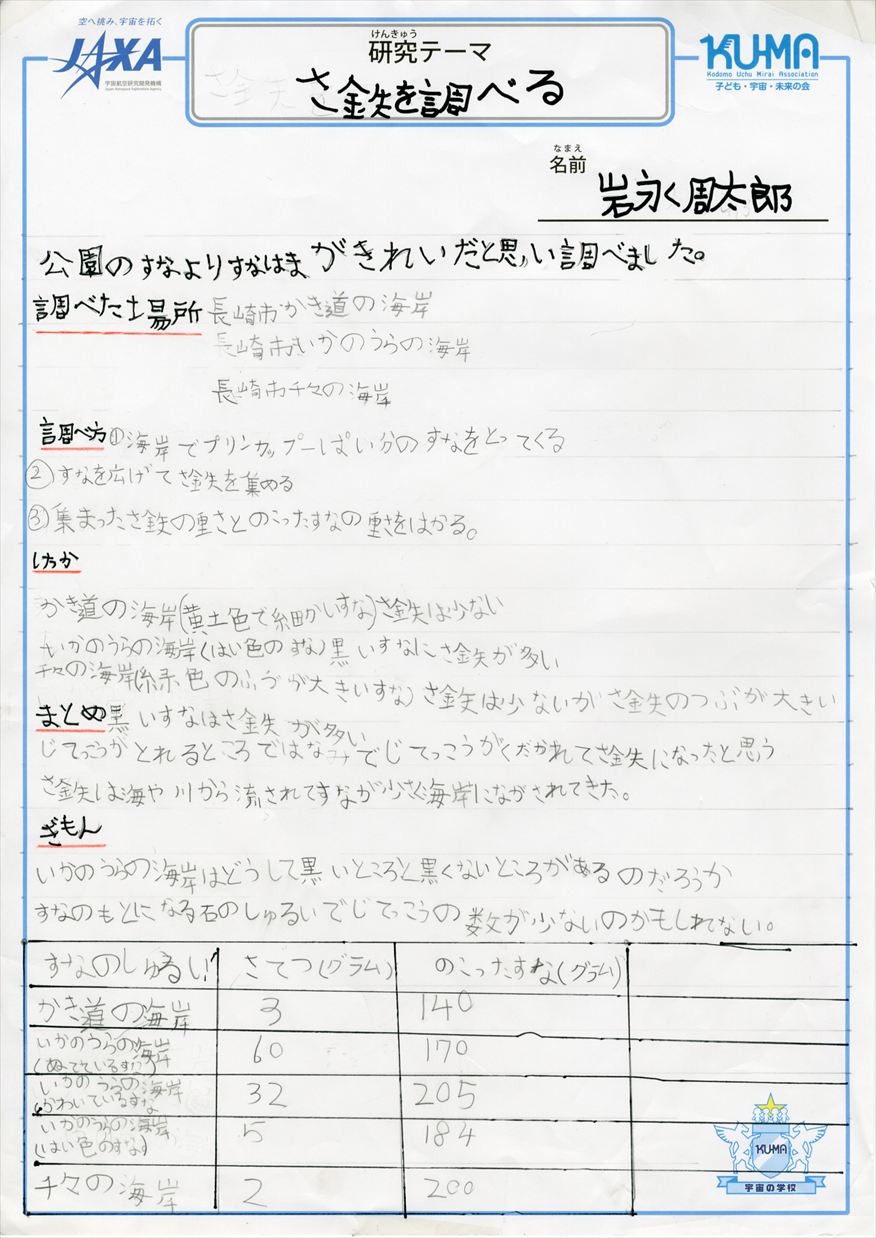 空へ挑み、宇宙を拓く
JAXA
宇宙航空研究開発機構
Japan Aerospace Exploration Agency
けんきゅう
研究テーマ
さ金鉄を調べる
KU-MA
Kodomo Uchu Mirai Association
子ども・宇宙・未来の会
なまえ
名前
岩永く周太郎
公園のすなよりすなはまがきれいだと思い調べました。
調べた場所 長崎市かき道の海岸
長崎市いかのうらの海岸
長崎市千々の海岸
調べ方 ①海岸でプリンカップ一ぱい分のすなをとってくる
②すなを広げてさ鉄を集める
③集まったさ鉄の重さとのこったすなの重さをはかる。
けっか
かき道の海岸(黄土色で細かいすな)さ鉄は少ない
いかのうらの海岸(はい色のすな)黒いすなにさ鉄が多い
千々の海岸(緑色のつぶが大きいすな)さ鉄は少ないがさ鉄のつぶが大きい
まとめ 黒いすなはさ鉄が多い
じてっこうがとれるところではなみでじてっこうがくだかれてさ鉄になったと思う
さ鉄は海や川から流されてすなが少さく海岸にながされてきた。
ぎもん
いかのうらの海岸はどうして黒いところと黒くないところがあるのだろうか
すなのもとになる石のしゅるいでじてっこうの数が少ないのかもしれない。
すなのしゅるい さてつ(グラム) のこったすな(グラム)
かき道の海岸 3 140
いかのうらの海岸 60 170
(ぬれているすな)
いかのうらの海岸 32 205
(かわいているすな
いかのうらの海岸 5 184
(はい色のすな)
千々の海岸 2 200
KU-MA
宇宙の学校